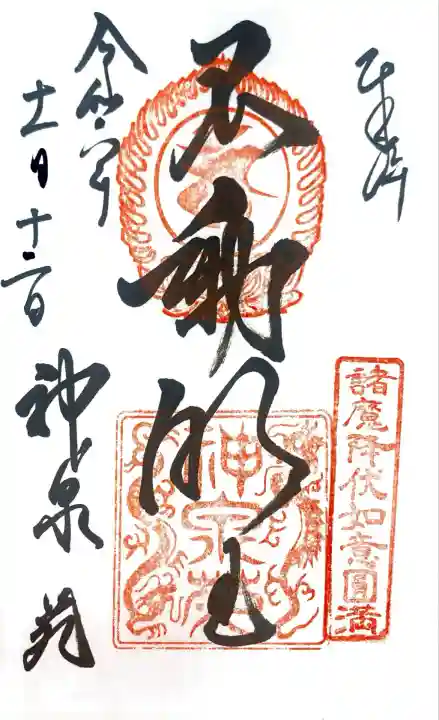 奉拝
諸魔降伏如意圓満
不動明王
神泉苑
令和六年
十一月十二日
神泉苑